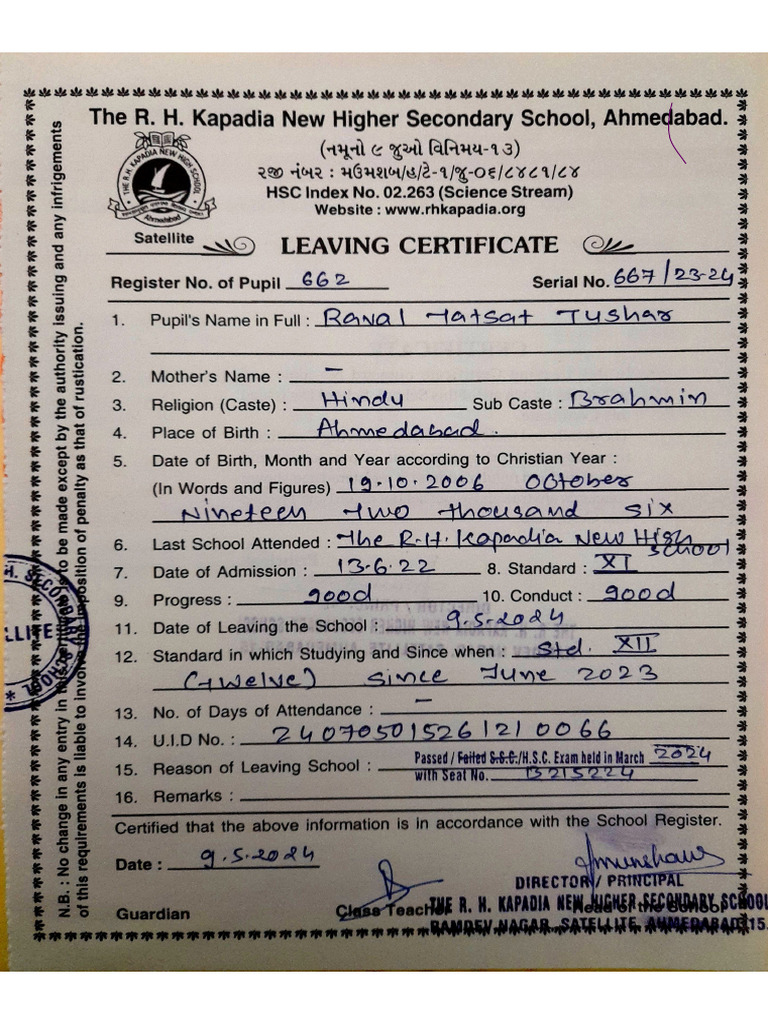 The R. H. Kapadia New Higher Secondary School, Ahmedabad.
(નમૂનો ૯ જુઓ વિનિમય-૧૩)
૨જી નંબર : મઉમશબ/હ/ટે-૧/જુ-૦૬/૮૪૮૧/૮૪
HSC Index No. 02.263 (Science Stream)
Website : www.rhkapadia.org
THE R. H. KAPADIA NEW HIGH SCHOOL
Ahmedabad
Satellite
LEAVING CERTIFICATE
Register No. of Pupil 662 Serial No. 667/23-24
1. Pupil's Name in Full : Raval Tatsat Tushar
2. Mother's Name : –
3. Religion (Caste) : Hindu Sub Caste : Brahmin
4. Place of Birth : Ahmedabad.
5. Date of Birth, Month and Year according to Christian Year :
(In Words and Figures) 19.10.2006 October
Nineteen Two thousand six
6. Last School Attended : The R.H. Kapadia New High School
7. Date of Admission : 13.6.22 8. Standard : XI
9. Progress : good 10. Conduct : good
11. Date of Leaving the School : 9.5.2024
12. Standard in which Studying and Since when : Std. XII
(twelve) since June 2023
13. No. of Days of Attendance : –
14. U.I.D No. : 240705015261210066
15. Reason of Leaving School : Passed / Failed S.S.C./H.S.C. Exam held in March 2024
with Seat No. B215224
16. Remarks :
Certified that the above information is in accordance with the School Register.
Date : 9.5.2024
DIRECTOR / PRINCIPAL
Guardian Class Teacher Head of the School
THE R. H. KAPADIA NEW HIGHER SECONDARY SCHOOL
RAMDEV NAGAR, SATELLITE, AHMEDABAD-15.
N.B. : No change in any entry in this certificate is to be made except by the authority issuing and any infrigements
of this requirements is liable to involve the imposition of penalty as that of rustication.